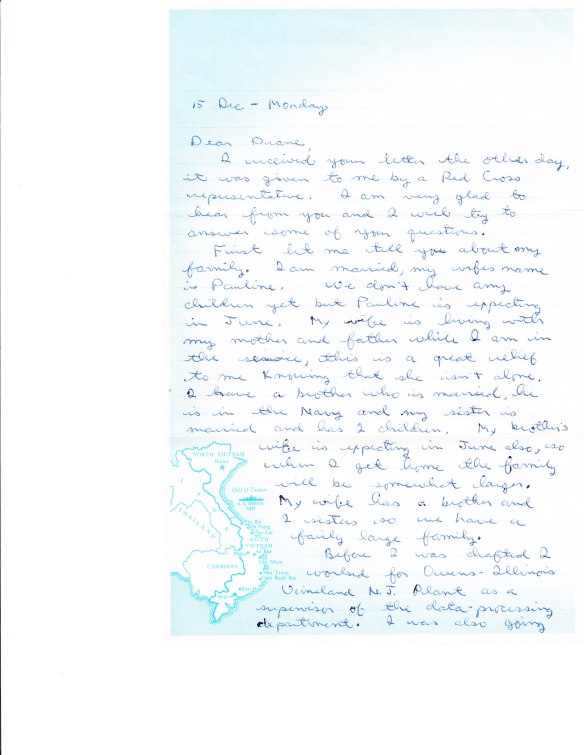 15 Dec - Monday
Dear Duane,
I received your letter the other day,
it was given to me by a Red Cross
representative. I am very glad to
hear from you and I will try to
answer some of your questions.
First let me tell you about my
family. I am married, my wifes name
is Pauline. We don't have any
children yet but Pauline is expecting
in June. My wife is living with
my mother and father while I am in
the service, this is a great relief
to me knowing that she isn't alone.
I have a brother who is married, he
is in the Navy and my sister is
married and has 2 children. My brother's
wife is expecting in June also, so
when I get home the family
will be somewhat larger.
My wife has a brother and
2 sisters so we have a
fairly large family.
Before I was drafted I
worked for Owens-Illinois
Vineland N.J. Plant as a
supervisor of the data-processing
department. I was also going
NORTH VIETNAM
Hanoi
Gulf of Tonkin
THAILAND
SOUTH
VIETNAM
CAMBODIA